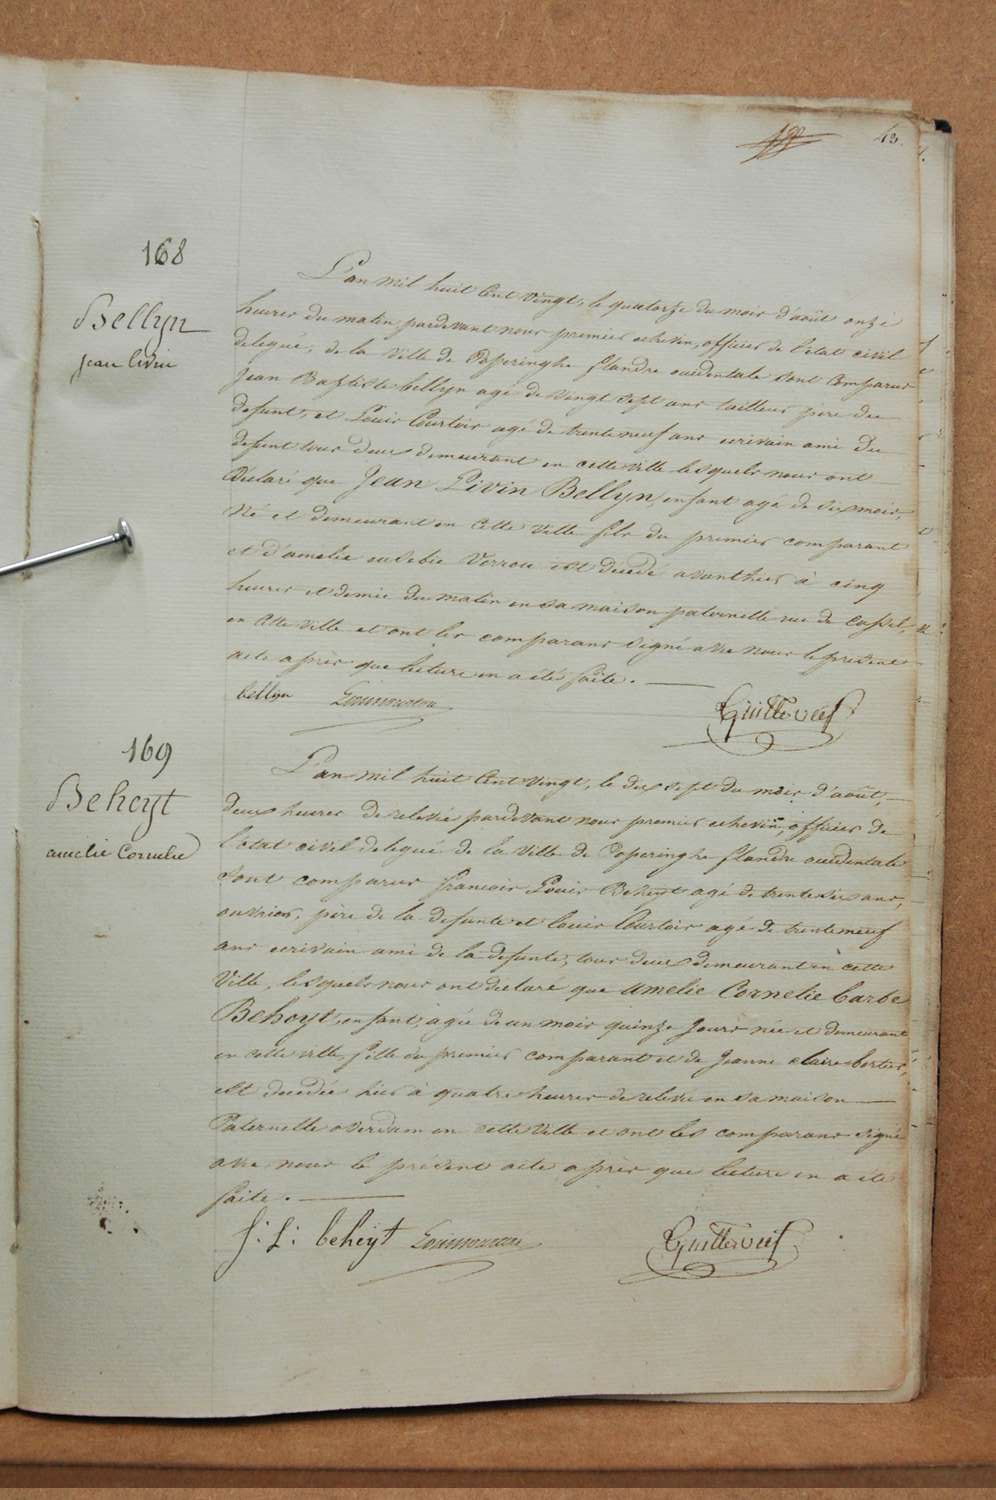 43.
168
Bellyn
jean livin
L'an mil huit Cent vingt, le quatorze du mois d'août onze
heures du matin pardevant nous premier echevin, officier de l'etat civil
delegué, de la Ville de Poperinghe flandre occidentale sont Comparus
Jean Baptiste bellyn agé de vingt sept ans tailleur pere du
defunt, et Louis Courtois agé de trente neuf ans ecrivain ami du
defunt tous deux demeurant en cette ville lesquels nous ont
Déclaré que Jean Livin Bellyn, enfant agé de six mois,
Né et demeurant en Cette Ville fils du premier comparant
et d'amelie eulebie Verrou est décédé avanthier à cinq
heures et demie du matin en sa maison paternelle rue de Cassel,
en Cette ville et ont les comparans signé avec nous le présent
acte après que lecture en a été faite.
bellyn Guilleweef
169
Beheyt
amelie Cornelie
L'an mil huit Cent vingt, le dix sept du mois d'août,
deux heures de relevée pardevant nous premier echevin, officier de
l'etat civil delegué de la Ville de Poperinghe flandre occidentale
Sont comparus françois Louis Beheyt agé de trente six ans,
ouvrier, père de la defunte et louis Courtois agé de trente neuf
ans ecrivain ami de la defunte, tous deux demeurant en cette
Ville, lesquels nous ont declaré que amelie Cornelie barbe
Beheyt, enfant, agée de un mois quinze jours née et demeurant
en cette ville, fille du premier comparant et de Jeanne claire bertier,
est decedée hier à quatre heures de relevée en sa maison
Paternelle overdam en cette Ville et ont les comparans signé
avec nous le présent acte après que lecture en a été
faite.
f: L: beheÿt Guilleweef